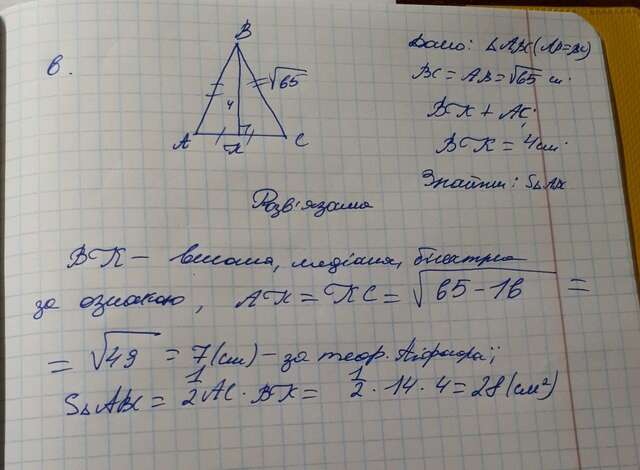 в.
B
√65
4
A
K
C
Дано: △ABC (AB=BC)
BC = AB = √65 см.
BK ⊥ AC;
BK = 4 см.
Знайти: S△ABC
Розв'язання
BK – висота, медіана, бісектриса
за ознакою, AK = KC = √65-16 =
= √49 = 7 (см) – за теор. Піфагора;
S△ABC = 1/2 AC · BK = 1/2 · 14 · 4 = 28 (см²)